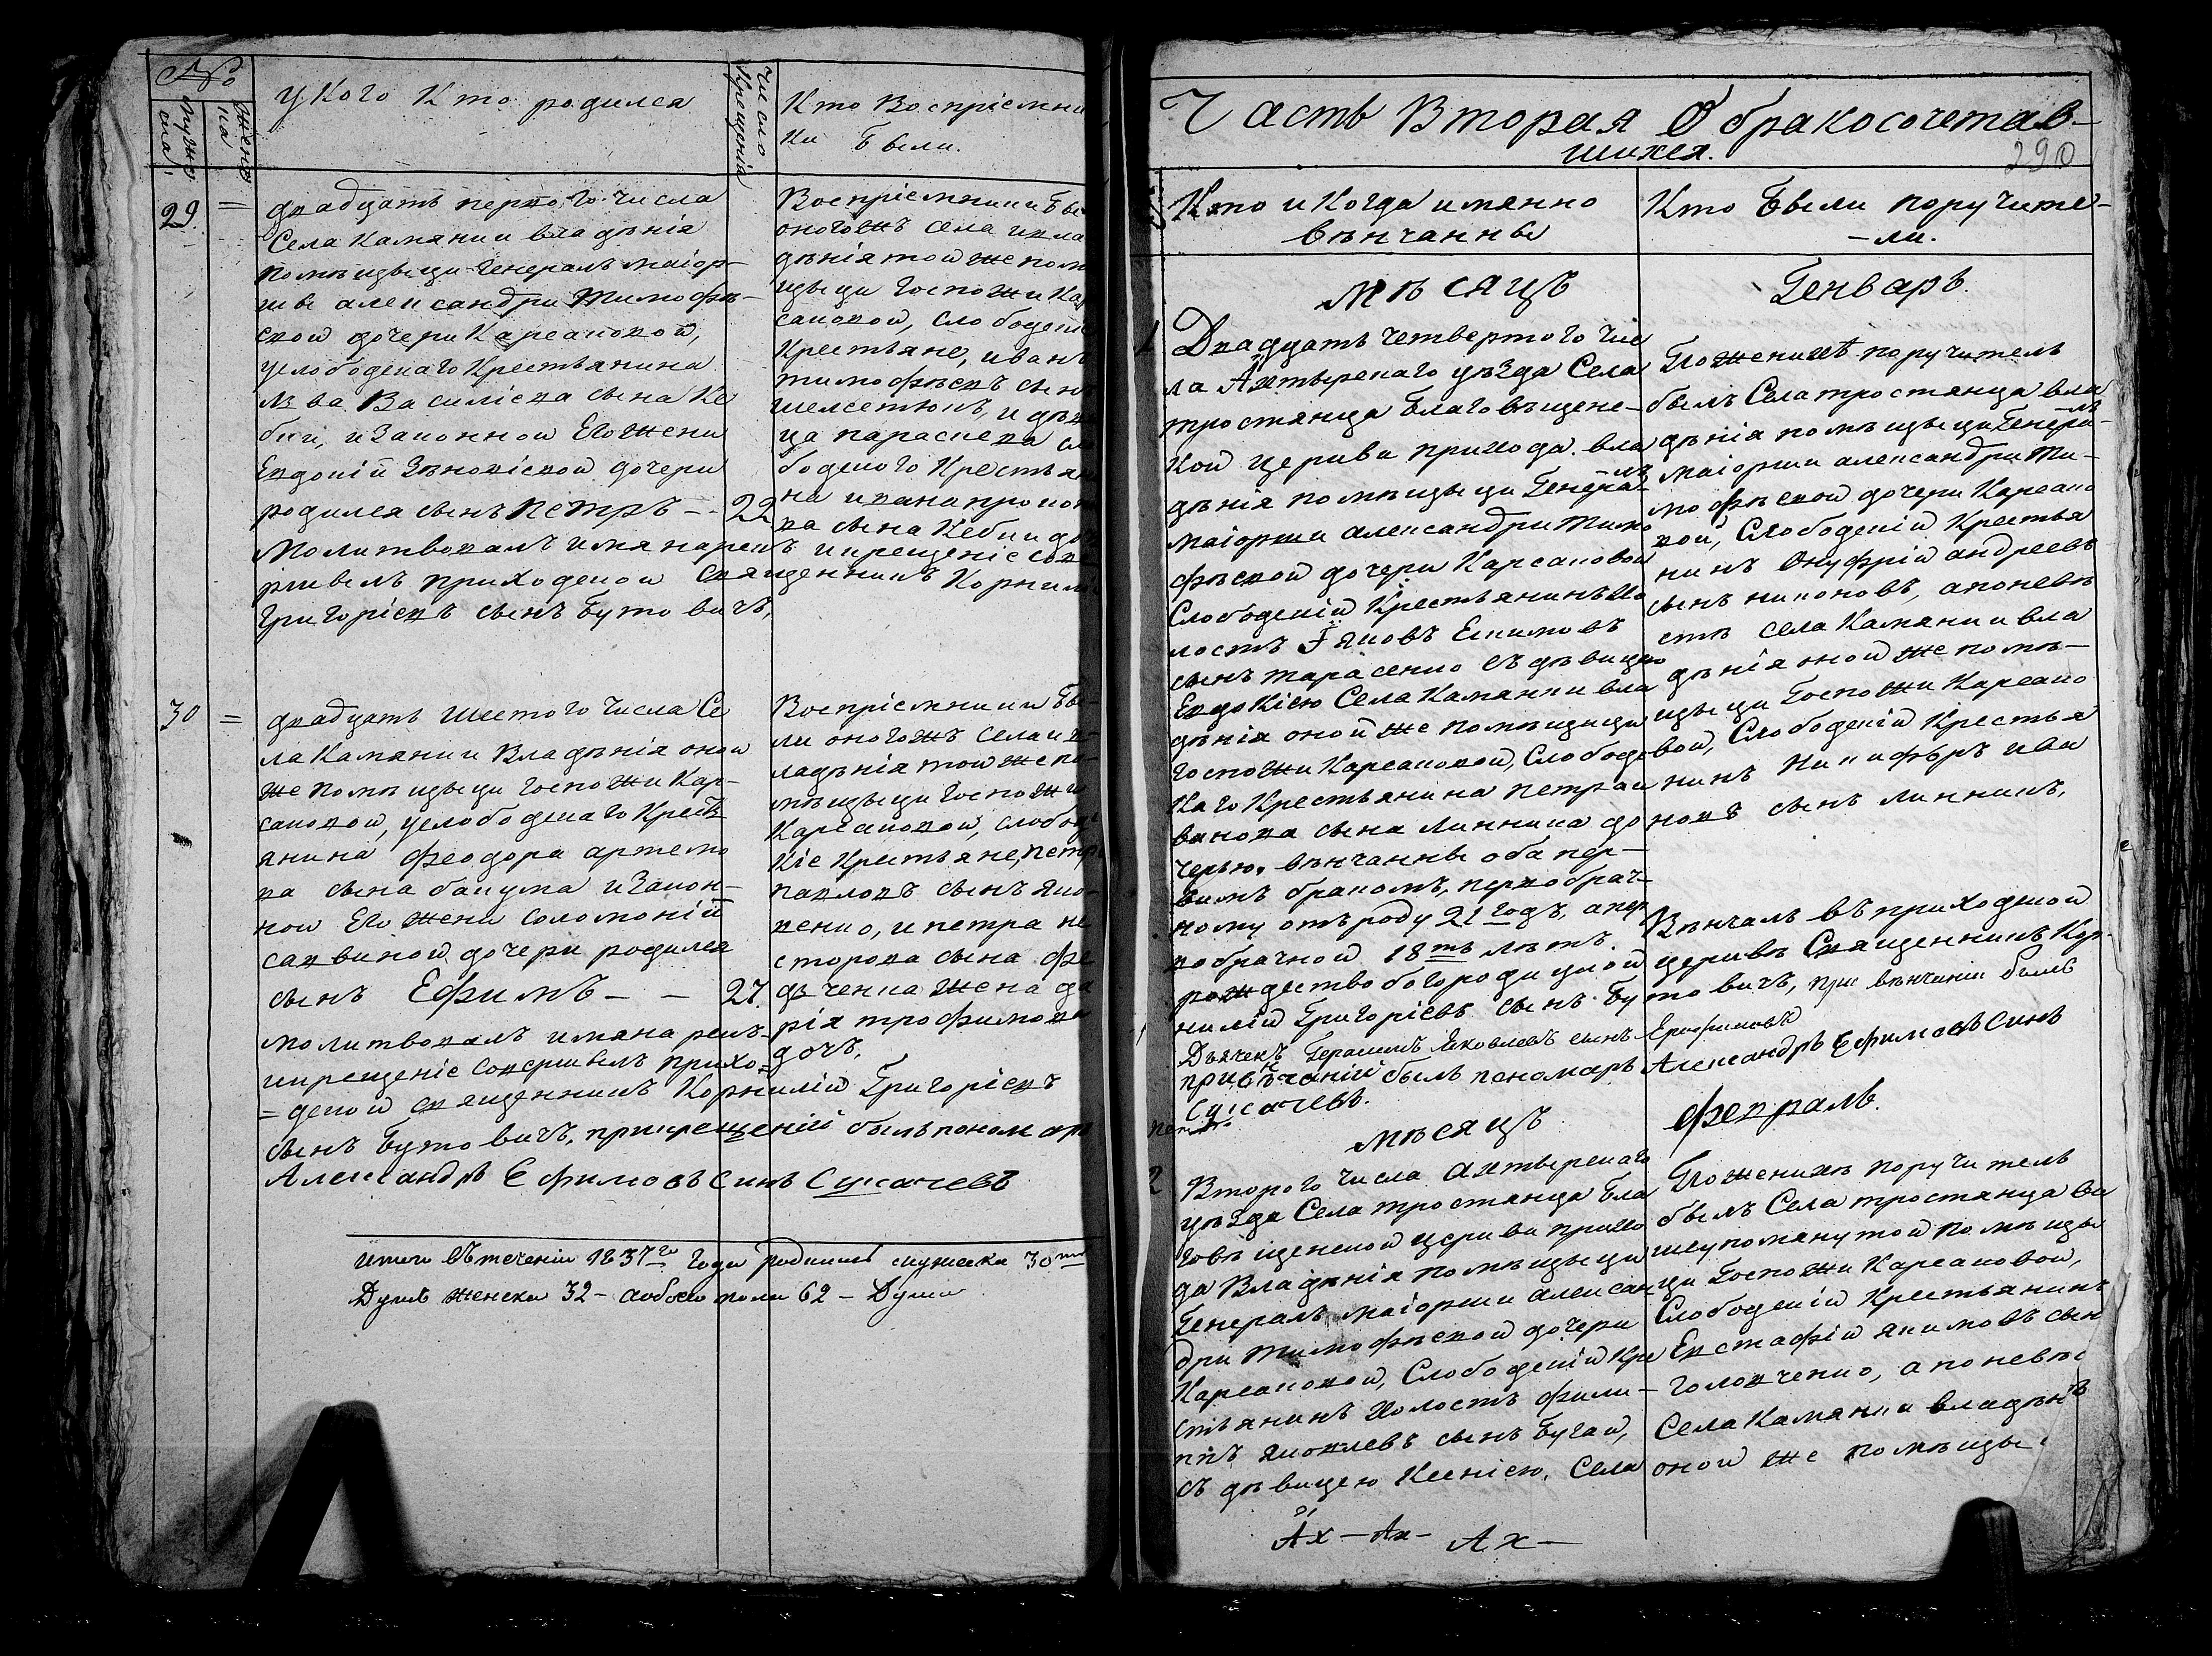 №
Мужеска
Женска
У Кого Кто родился
Число Крещенія
Кто Воспріемни
ки были.
29
=
двадцать первого числа
Села Камянки владѣнія
помѣщыци генералъ маіор-
ши александри Тимофѣ-
евой дочери Карсаковой,
услободскаго Крестьянина
Родился сынъ Петръ — 22
Молитвовалъ имянарекъ икрещеніе сове
ршивъ приходской Священникъ Корнилі
Григоріевъ сынъ Бутовичъ,
Воспріемники Бы
оногожъ села ивла
дѣнія той же пом
щыци госпожи Кар
саковой, слободскі
Крестьяне, иванъ
тимофѣевъ сынъ
шелестюкъ, и дѣви
ца параскева сл
бодского Крестьян
на ивана прокоп
ва сына Кебки до
30
=
двадцать шестого числа Се
ла Камянки Владѣнія оной
же помѣщыци госпожи Кар-
саковой, услободскаго Крестъ
янина феодора артемо
ва сына бакума изакон-
ной Его жени соломоніи
саввиной дочери родился
сынъ Ефимъ — — 27
молитвовалъ имянарекъ
икрещеніе совершивъ прихо=
=дской священникъ Корнилій Григоріевъ
сынъ Бутовичъ, прикрещеніи былъ пономарь
Александръ Ефимовъ Синъ Сукачевъ
Воспріемники Бы-
ли оногожъ села и в-
ладѣнія той же по-
мѣщыци госпожи
Карсаковой, слобод
Кіе Крестьяне, петръ
павловъ сынъ яко-
венко, и петра не
сторова сына фе
дченка жена да
рія трофимова
дочъ,
Итого въ теченіи 1837го года родилось мужеска 30ть
Душъ женска 32 — аобоего пола 62 — Души
Часть Вторая О бракосочетав-
шихся.
290
Кто и Когда имянно
вѣнчанны
Кто Были поручите-
-ли.
мѣсяцъ
Генваръ.
1
Двадцать четвертого чис
ла Ахтырскаго уѣзда Села
тростянца Благовѣщенс-
кой церкви прихода вла
дѣнія помѣщыци Генералъ
маіорши александри Тимо
фѣевой дочери Карсаковой
Слободскій Крестьянинъ Хо
лостъ Яковъ Екимовъ
сынъ тарасенко съ дѣвицею
Евдокіею Села Камянки вла
дѣнія оной же помѣщыци
госпожи Карсаковой, Слободс
Каго Крестьянина петра и
ванова сына линника до
черью, вѣнчанны оба пер-
вимъ бракомъ, первобрач-
ному отъ роду 21 годъ, апер
вобрачной 18ть лѣтъ.
рождествобогородицкой
нилій Григоріевъ сынъ Бу
Дьячекъ Герасимъ Яковлевъ сынъ Ерофимовъ
привѣчаніи былъ пономарь Александръ Ефимовъ Синъ
Сукачевъ.
Поженихѣ поручитель
былъ Села тростянца вла
дѣнія помѣщыци Генералъ
маіорши александри Ти-
мофѣевой дочери Карсако
вой, Слободскій Крестья
нинъ Онуфрій андреевъ
сынъ никоновъ, апоневѣ
стѣ села Камянки вла
дѣнія оной же помѣ-
щыци Госпожи Карсако
вой, Слободскій Крестья
нинъ Никифоръ ива
новъ сынъ линникъ,
Вѣнчалъ въ приходской
церквѣ Священникъ Кор-
товичъ, при вѣнчаніи былъ
мѣсяцъ
февралъ.
2
Второго числа ахтырскаго
уѣзда Села тростянца Бла
говѣщенской церкви прихо
да Владѣнія помѣщыци
Генералъ маіорши алексан
дри Тимофѣевой дочери
Карсаковой, Слободскій Кре
стьянинъ Холостъ фили-
ппъ яковлевъ сынъ Бугай,
съ дѣвицею Ксеніею, Села
Поженихѣ поручитель
былъ Села тростянца ви
шеупомянутой помѣщы
ци Госпожи Карсаковой,
Слободскій Крестьянинъ
Евстафій якимовъ сын
головченко, апоневѣс
Села Камянки владѣнія
оной же помѣщы
Ах — Ах — Ах —